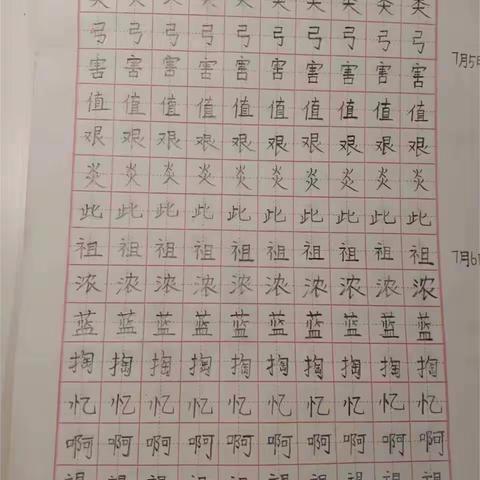 类 类 类 类 类 类 类 类 类 类
弓 弓 弓 弓 弓 弓 弓 弓 弓 弓
害 害 害 害 害 害 害 害 害 害
7月5日
值 值 值 值 值 值 值 值 值 值
艰 艰 艰 艰 艰 艰 艰 艰 艰 艰
炎 炎 炎 炎 炎 炎 炎 炎 炎 炎
此 此 此 此 此 此 此 此 此 此
祖 祖 祖 祖 祖 祖 祖 祖 祖 祖
7月6日
浓 浓 浓 浓 浓 浓 浓 浓 浓 浓
蓝 蓝 蓝 蓝 蓝 蓝 蓝 蓝 蓝 蓝
掏 掏 掏 掏 掏 掏 掏 掏 掏 掏
忆 忆 忆 忆 忆 忆 忆 忆 忆 忆
啊 啊 啊 啊 啊 啊 啊 啊 啊 啊